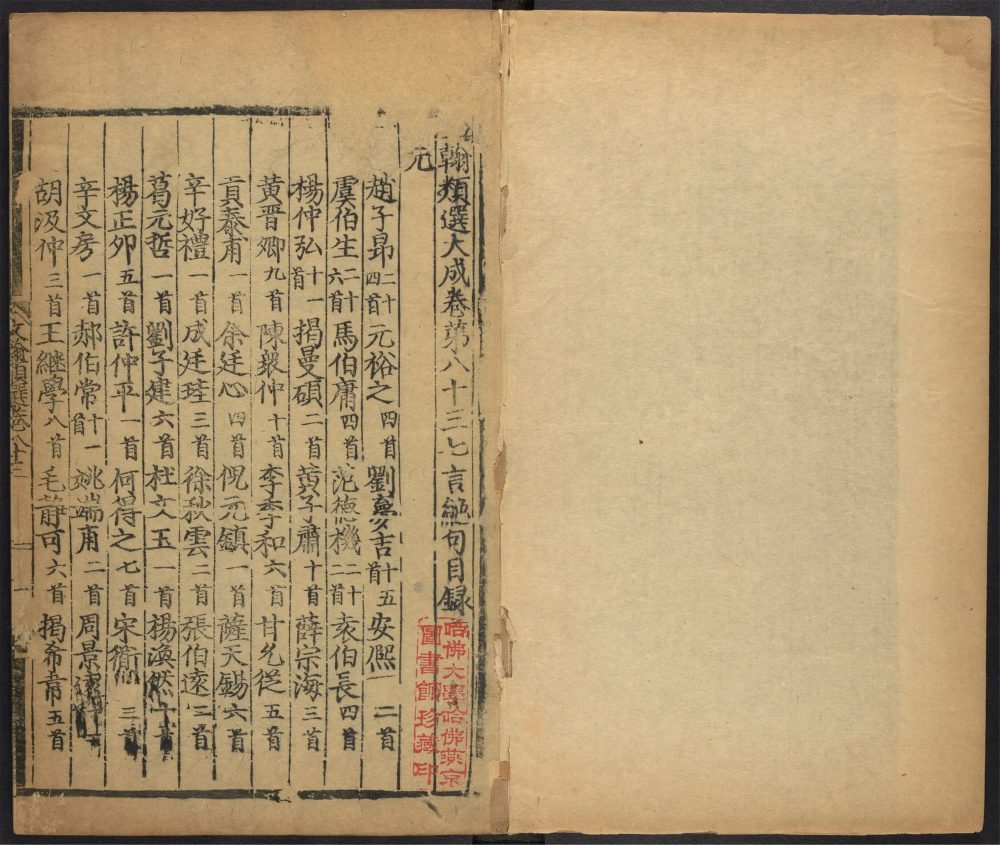 翰類選大成卷第八十三七言絕句目録
元
趙子昂二十四首元裕之四首劉夢吉十五首安熈二首
虞伯生二十六首馬伯庸四首范德機二十二首袁伯長四首
楊仲弘十一首揭曼碩二首黄子肅十首薛宗海三首
黄晋卿九首陳衆仲十首李季和六首甘允從五首
貢泰甫一首余廷心四首倪元鎮一首薩天錫六首
辛好禮一首成廷珪三首徐秋雲二首張伯逺二首
葛元哲一首劉子建六首杜文玉一首楊渙然十首
楊正卯五首許仲平一首何得之七首宋衜三首
辛文房一首郝伯常十一首姚端甫二首周景逺一
胡汲仲三首王継學八首毛静可六首揭希韋五首
文翰類選卷八十三
一
哈佛大學哈佛燕京
圖書館珍藏印